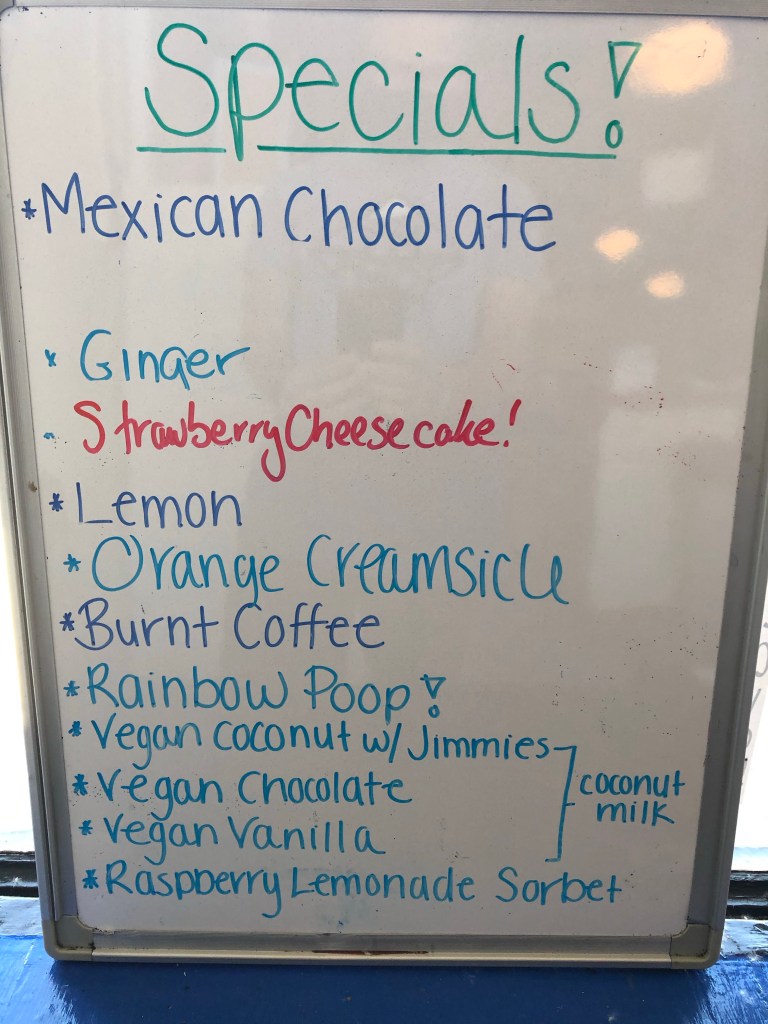 Specials!
*Mexican Chocolate
* Ginger
- Strawberry Cheesecake!
* Lemon
* Orange Creamsicle
*Burnt Coffee
*Rainbow Poop!
* Vegan Coconut w/ Jimmies
* Vegan Chocolate
* Vegan Vanilla
coconut
milk
*Raspberry Lemonade Sorbet